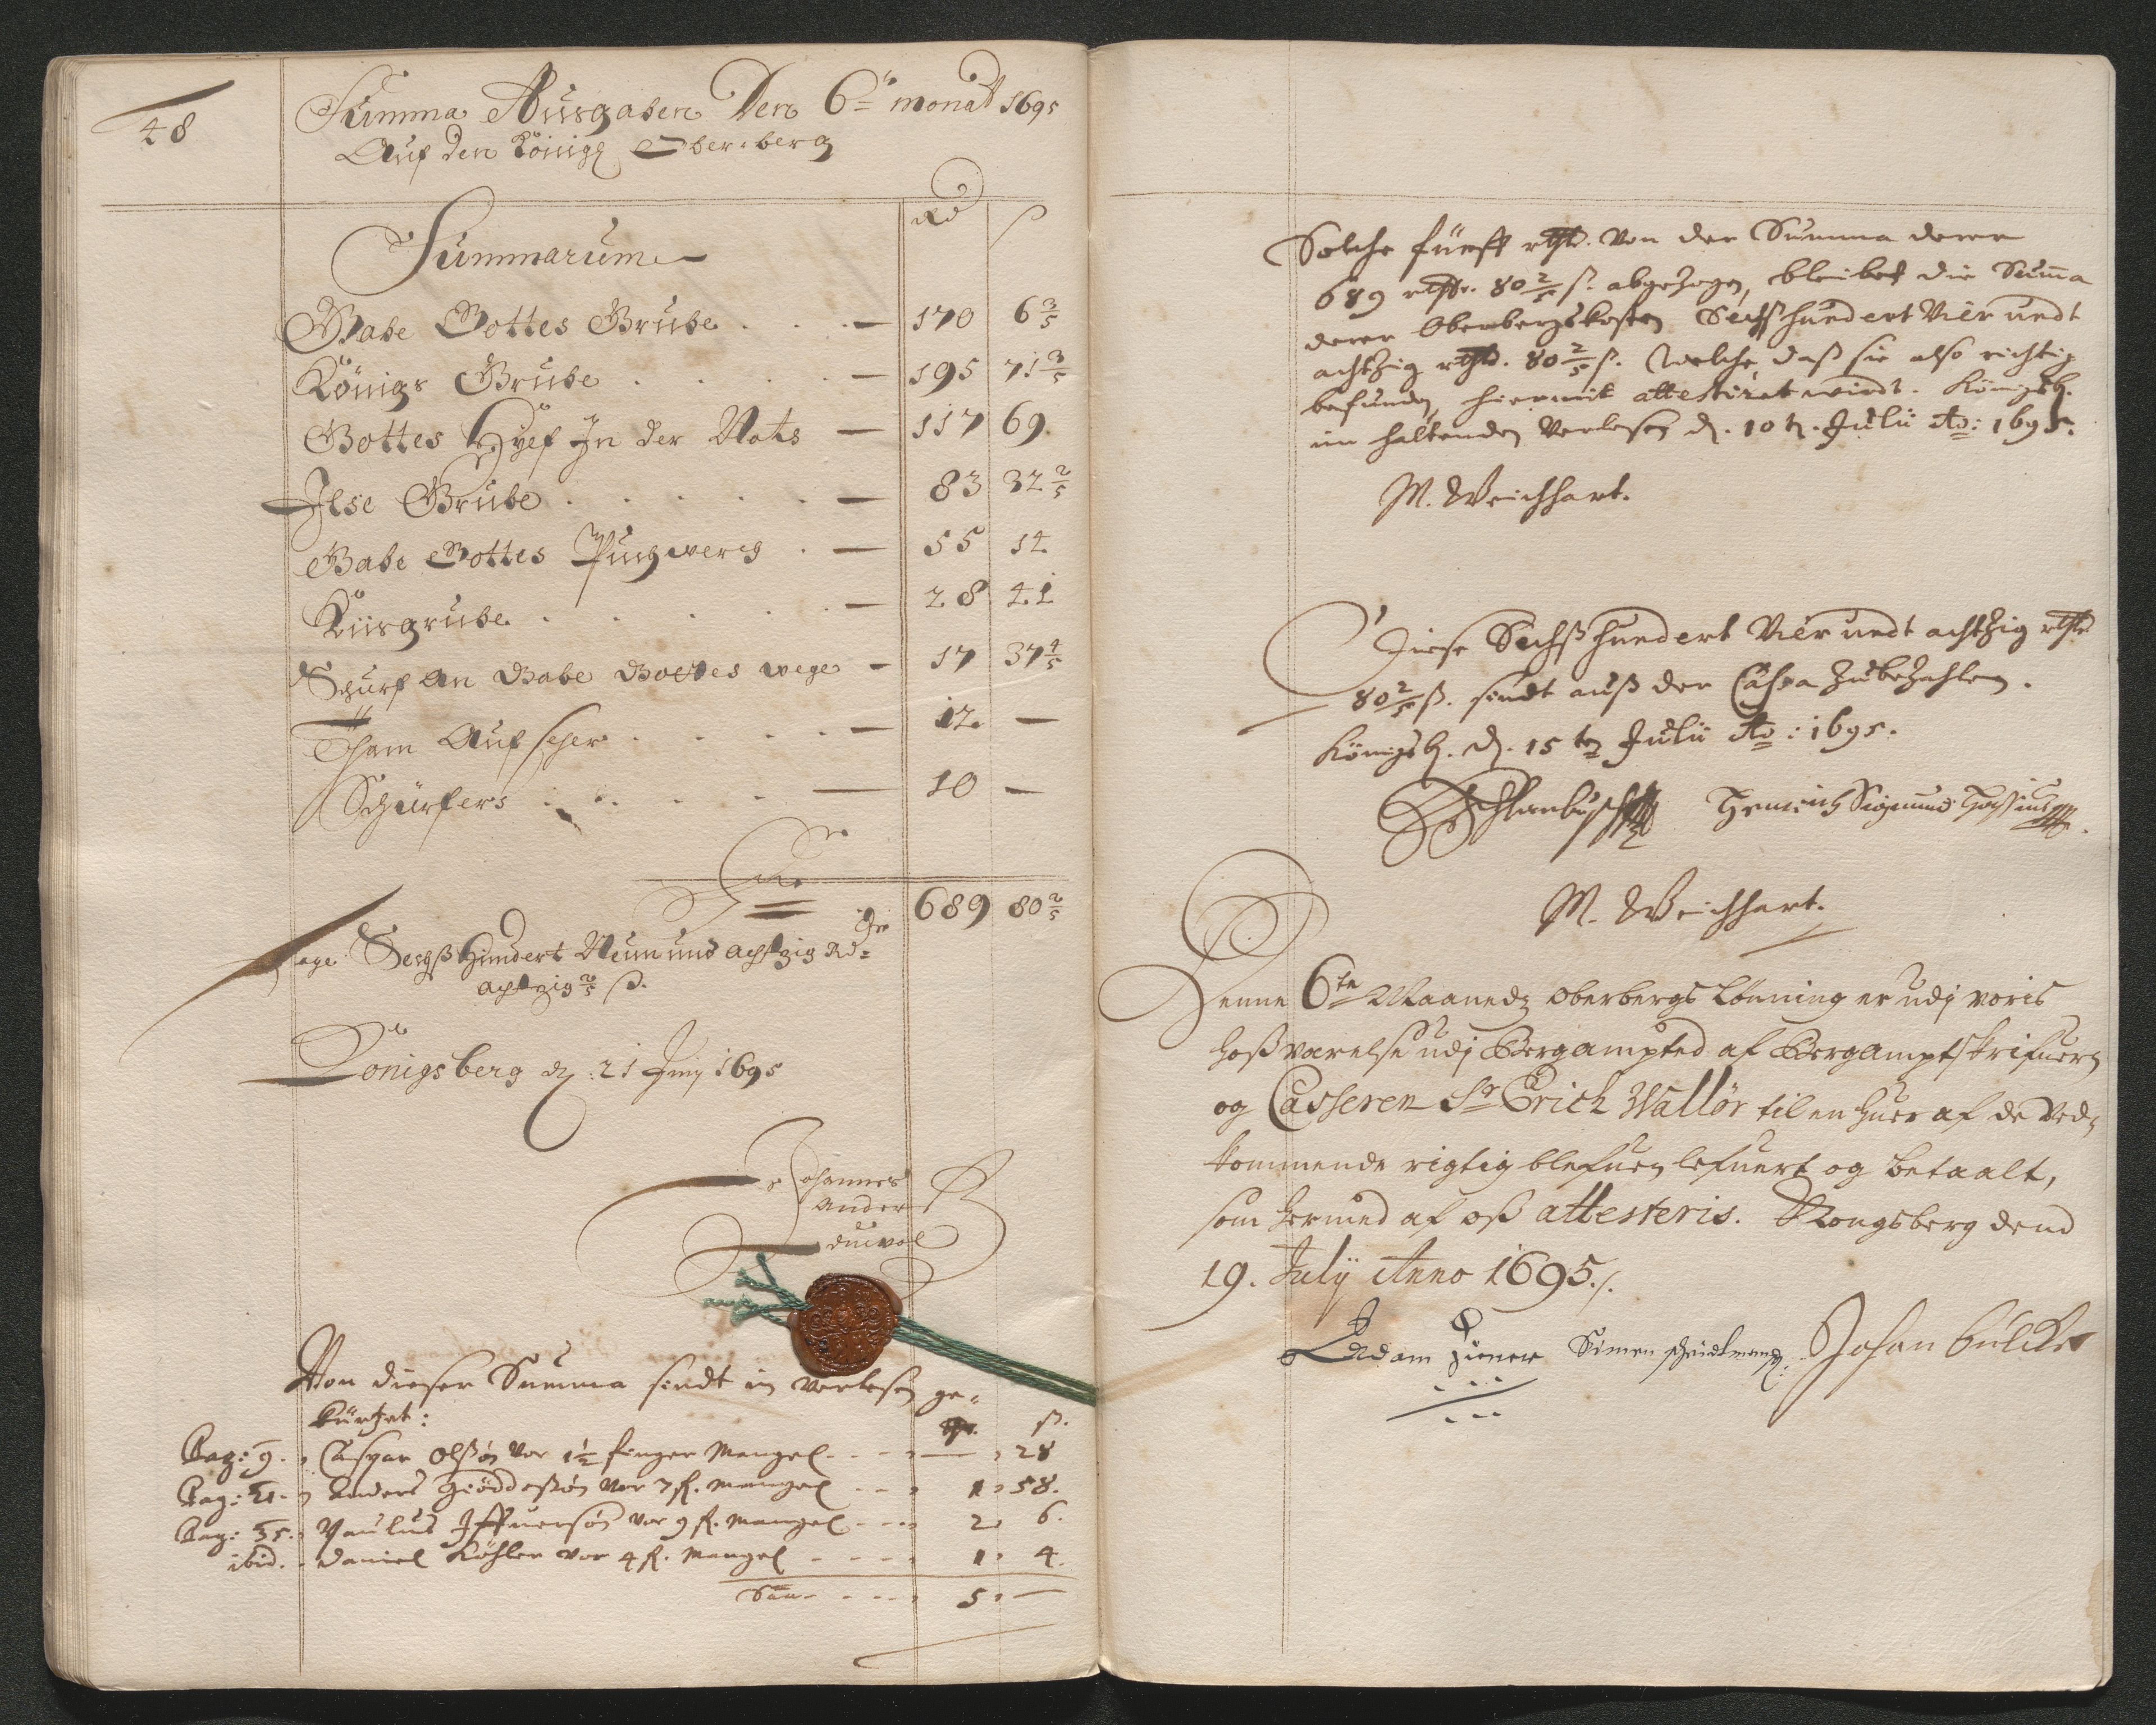 48
Summa Ausgaben Den 6ten monat 1695
Auf den Königl Ober-berg
Rd ß
Summarum
Gabe Gottes Grube . . . — 170 6 3/5
Königs Grube . . . . — 195 71 3/5
Gottes Hylf Jn der Nots — 117 69.
Ilse Grube . . . . . — 83 32 2/5
Gabe Gottes Puchwerg . — 55 14
Kiisgrube . . . . — 28 41
Schurf an Gabe Gottes wege — 17 37 4/5
Tham Aufseher . . . . — 12. —
Schürfers . . . . . — 10 —
689 80 2/5
Sage Sechßhundert Neun und achtzig Rdr
achtzig 2/5 ß.
Königsberg d: 21 Juny 1695
Johannes
Anders
Von dieser Summa sindt in verlesen ge-
kürtzet:
ß.
Pag: 9. Caspar Olßön vor 1 1/2 finger Mangel — 28
Pag: 21. Anders Giöddeßön vor 7 f. mangel 1 58.
Pag: 35. Paulus Iffuersön vor 9 f. mangel 2 6.
ibid. Daniel Köhler vor 4 f. Mangel 1. 4.
Sum̄a 5. —
Solche fünff rthlr. von der Summa derer
689 rthlr. 80 2/5 ß. abgezogen, bleibet die Sum̄a
derer Oberbergskosten Sechßhundert Vier undt
achtzig rthlr. 80 2/5 ß. Welche, daß sie also richtig
befunden, hiermit attestiret wirdt. Königsb.
im haltenden Verlesen d. 10 t. Julii Ao: 1695.
M. Weichhart.
Diese Sechßhundert Vier undt achtzig rthlr
80 2/5 ß. sindt auß der Cassa zubezahlen.
Königsb. d. 15 ten Julii Ao: 1695.
Schlanbusch Henrich Sigmund Haßius
M. Weichhart.
Denne 6te Maaneds Oberbergs Lønning er udj voris
hoßværelse udj Bergampted af Bergamptskrifueren
og Casseren Sr Erich Wallør til en huer af de ved-
kommende rigtig blefuen lefuert og betaalt,
som hermed af oß attesteris. Kongsberg dend
19. Julij Anno 1695./.
Adam Ziener Simen Johan Bülcke